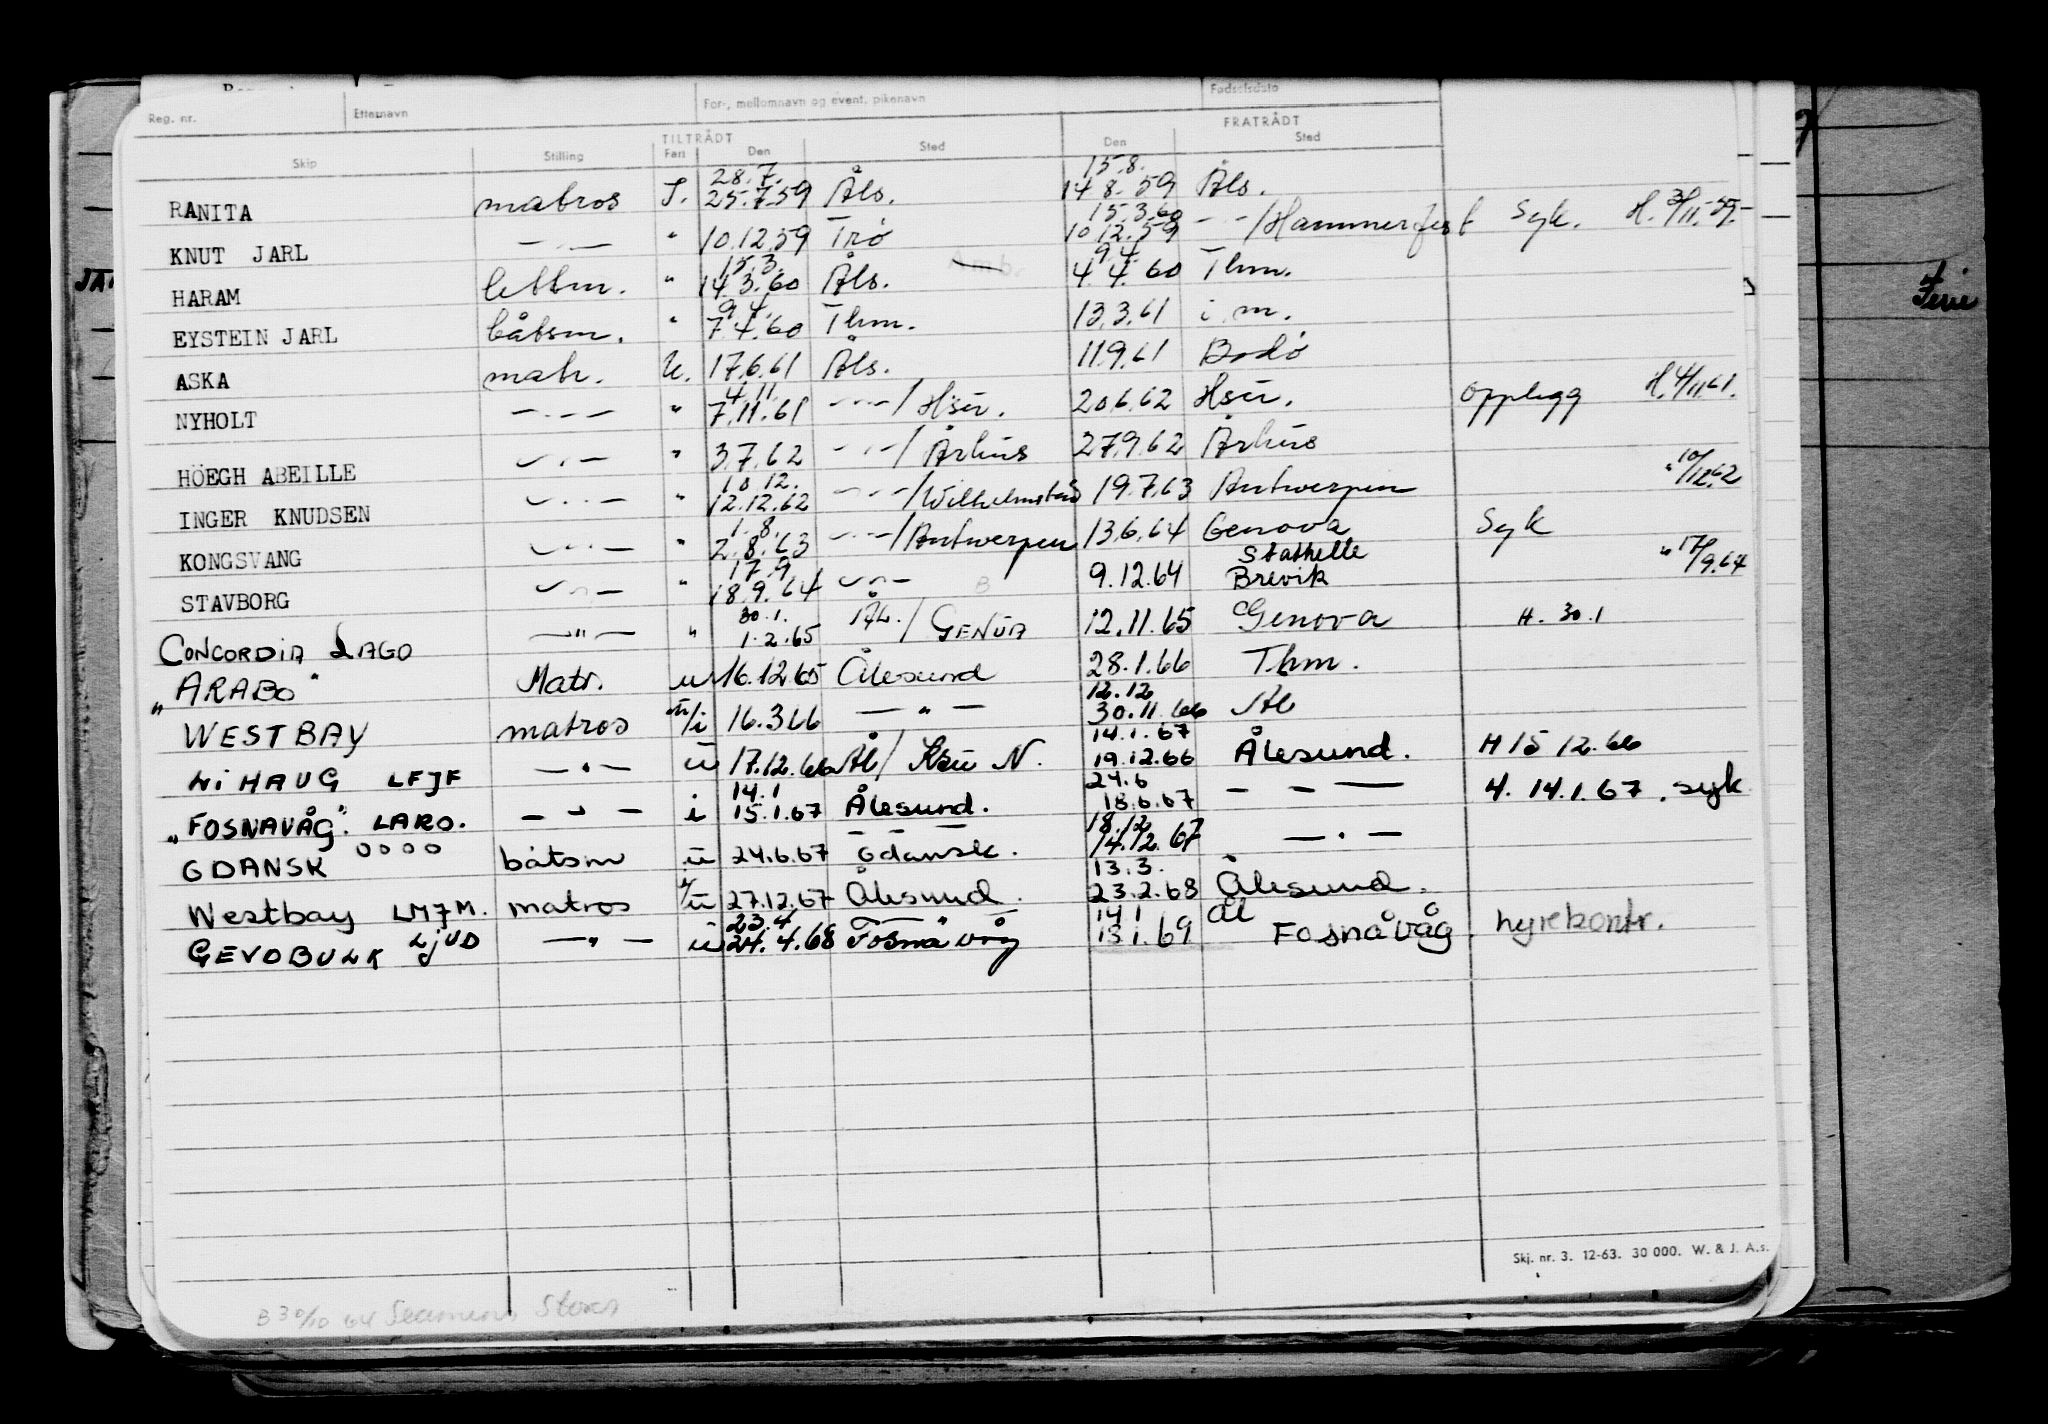 Reg. nr. Etternavn For-, mellomnavn og event. pikenavn Fødselsdato
TILTRÅDT FRATRÅDT
Skip Stilling Fart Den Sted Den Sted
28.7. 15.8.
RANITA matros I. 25.7.59 Åls. 14.8.59 Åls.
15.3.60
KNUT JARL — " — " 10.12.59 Trö 10.12.59 — " — /Hammerfest Syk. H. 3/11.59.
15.3. 9.4.
HARAM lettm. " 14.3.60 Åls. 4.4.60 Thm.
9.4.
EYSTEIN JARL båtsm. " 7.4.60 Thm. 13.3.61 i. m.
ASKA matr. U. 17.6.61 Åls. 11.9.61 Bodö
4.11.
NYHOLT — " — " 7.11.61 — " — / Hsü. 20.6.62 Hsü. Opplegg H. 4/11.61.
HÖEGH ABEILLE — " — " 3.7.62 — " — / Århus 27.9.62 Århus
10.12.
INGER KNUDSEN — " — " 12.12.62 — " — /Wilhelmstad 19.7.63 Antwerpen " 10/12.62
1.8.
KONGSVANG — " — " 2.8.63 — " — /Antwerpen 13.6.64 Genova Syk
17.9 Stathelle
STAVBORG — " — " 18.9.64 — " — B 9.12.64 Brevik " 17/9.64
30.1.
CONCORDIA LAGO — " — " 1.2.65 ÅL. / GENUA 12.11.65 Genova H. 30.1
"ARABO" Matr. u 16.12.65 Ålesund 28.1.66 Thm.
12.12
WESTBAY matros u/i 16.3.66 — " — 30.11.66 Ål
14.1.67
LIHAUG LFJF — " — u 17.12.66 Ål/ Ksu N. 19.12.66 Ålesund. H 15 12.66
14.1 24.6
"FOSNAVÅG". LARO. — " — i 15.1.67 Ålesund. 18.6.67 — — — H. 14.1.67. syk
18.12
GDANSK OOOO båtsm u 24.6.67 Gdansk. 14.12.67 — " —
13.3.
Westbay LMJM. matros i/u 27.12.67 Ålesund. 23.2.68 Ålesund.
23.4 14.1 Ål
GEVOBULK LJUD — " — u 24.4.68 Fosnavåg 13.1.69 Fosnåvåg. hyrekontr.
Ferie
Skj. nr. 3. 12-63. 30 000. W. & J. A.s.
B 30/10 64 Seamens Stores